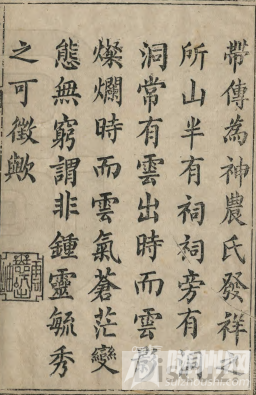 帶傳為神農氏發祥之
所山半有祠祠旁有洞
洞常有雲出時而雲彩
燦爛時而雲氣蒼茫變
態無窮謂非鍾靈毓秀
之可徵歟